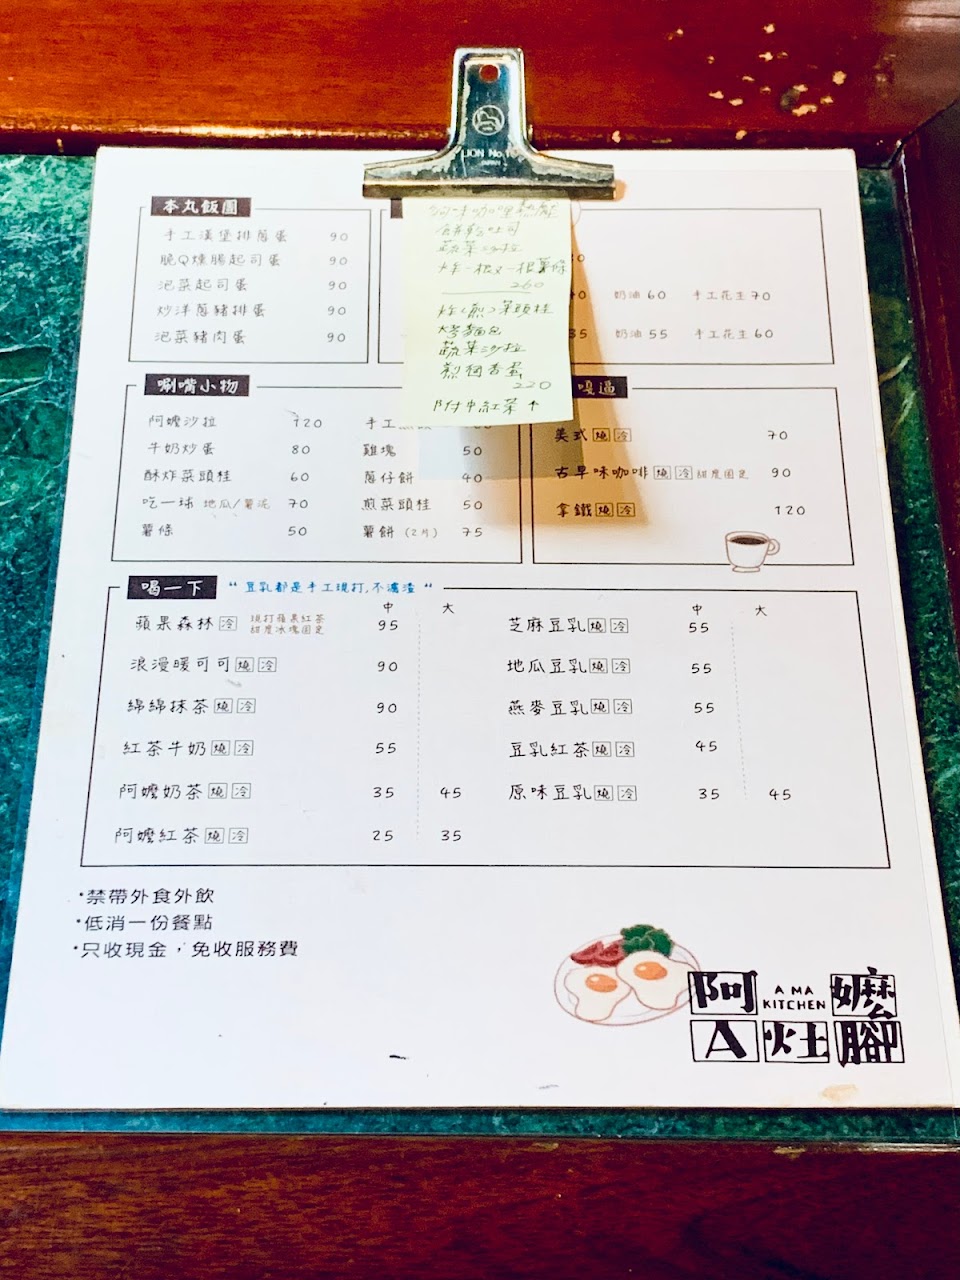 LION No.
JAPAN
咖哩
吐司
蔬菜沙拉
炸一根又一根薯條
260
炸(煎)菜頭桂
烤麵包
蔬菜沙拉
荷香蛋
220
附中紅茶↑
本丸飯團
手工漢堡排蔥蛋 90
脆Q燻腸起司蛋 90
泡菜起司蛋 90
炒洋蔥豬排蛋 90
泡菜豬肉蛋 90
奶油 60 手工花生 70
35 奶油 55 手工花生 60
唰嘴小物
阿嬤沙拉 120 手工
牛奶炒蛋 80 雞塊 50
酥炸菜頭桂 60 蔥仔餅 40
吃一球 地瓜/薯泥 70 煎菜頭桂 50
薯條 50 薯餅 (2片) 75
嘎逼
美式 燒 冷 70
古早味咖啡 燒 冷 甜度固定 90
拿鐵 燒 冷 120
喝一下 “豆乳都是手工現打,不濾渣“
中 大 中 大
蘋果森林 冷 現打蘋果紅茶 甜度冰塊固定 95 芝麻豆乳 燒 冷 55
浪漫暖可可 燒 冷 90 地瓜豆乳 燒 冷 55
綿綿抹茶 燒 冷 90 燕麥豆乳 燒 冷 55
紅茶牛奶 燒 冷 55 豆乳紅茶 燒 冷 45
阿嬤奶茶 燒 冷 35 45 原味豆乳 燒 冷 35 45
阿嬤紅茶 燒 冷 25 35
·禁帶外食外飲
·低消一份餐點
·只收現金，免收服務費
阿 A MA KITCHEN 嬤
A 灶 腳